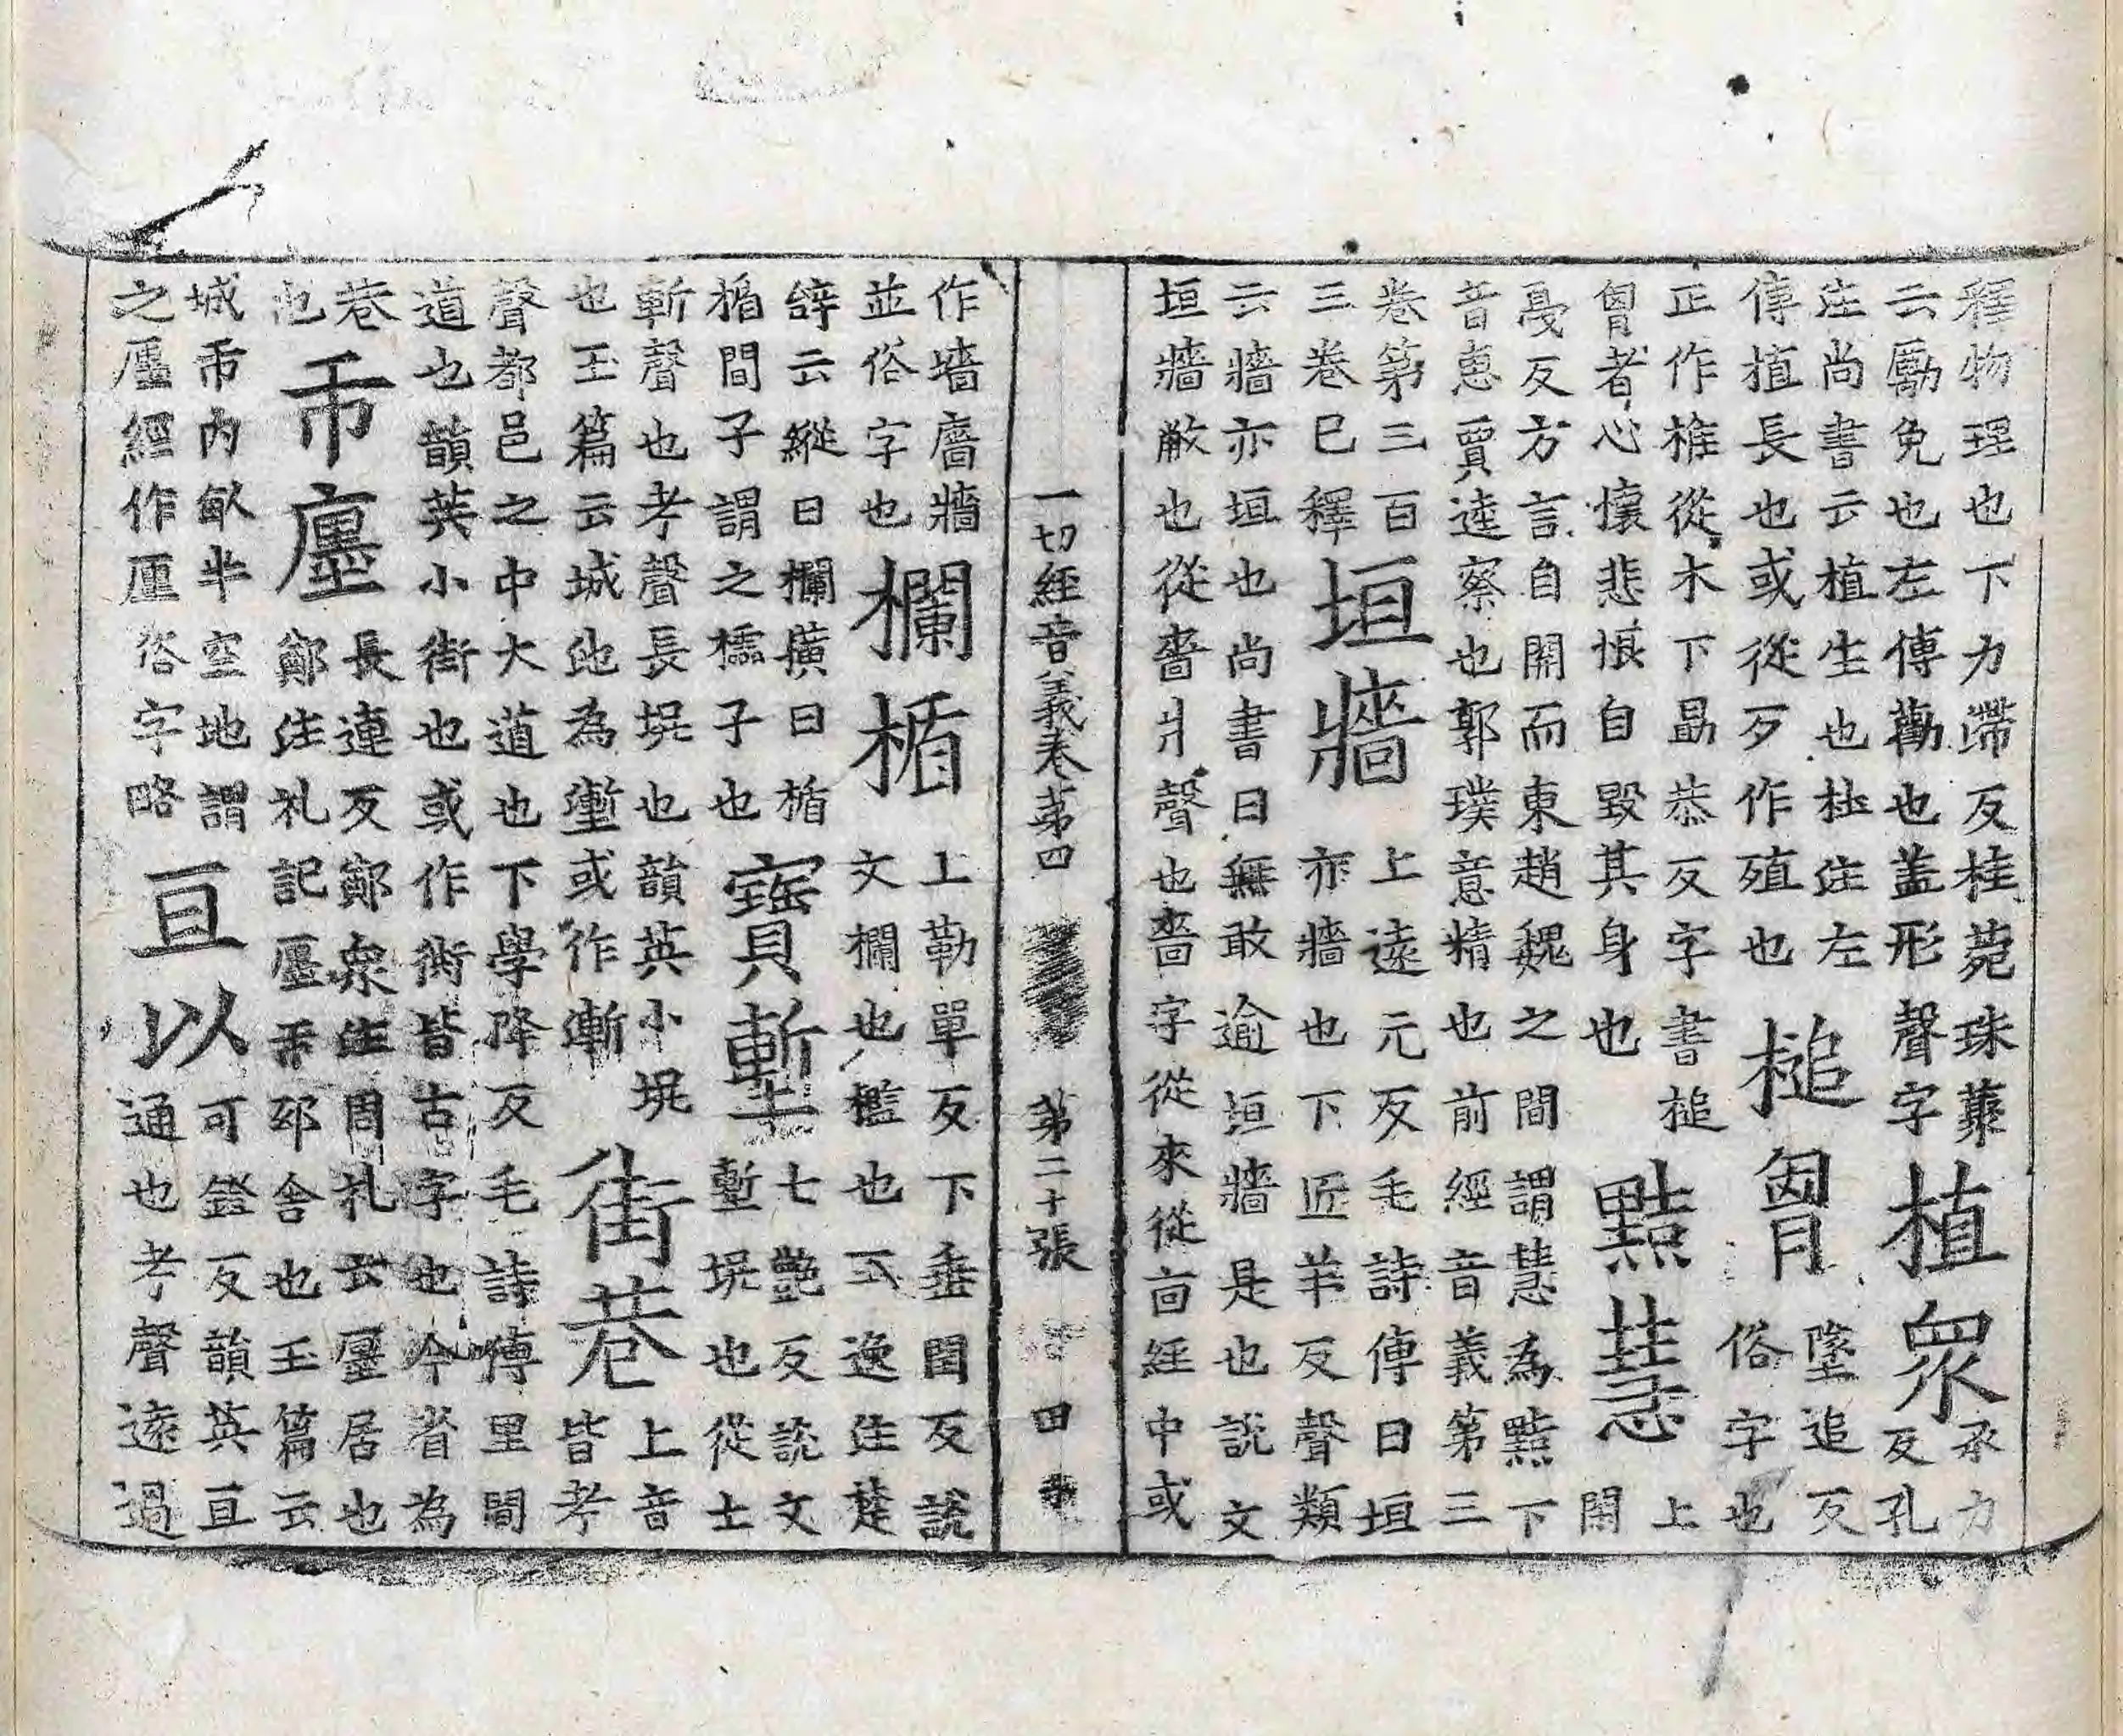 釋物理也下力滯反桂菀珠藂云勵免也左傳勸也蓋形聲字植眾承力反孔
注尚書云植生也杜注左傳植長也或從歹作殖也槌胷墜追反俗字也
正作椎從木下勗恭反字書槌胷者心懷悲恨自毀其身也黠慧上閑
戞反方言自關而東趙魏之間謂慧為黠下音惠賈逵察也郭璞意精也前經音義第三
卷第三百三卷已釋垣牆上遠元反毛詩傳曰垣亦牆也下匠羊反聲類
云牆亦垣也尚書曰無敢逾垣牆是也說文垣牆蔽也從嗇爿聲也嗇字從來從㐭經中或
一切經音義卷第四 第二十張 田
作墻廧牆並俗字也欄楯上勒單反下垂閏反說文欄也檻也王逸注楚
辝云縱曰欄橫曰楯楯間子謂之櫺子也寶塹七豔反說文塹坑也從土
斬聲也考聲長坑也韻英小坑也玉篇云城池為壍或作漸街巷上音皆考
聲都邑之中大道也下學降反毛詩傳里間道也韻英小街也或作衖皆古字也今省為
巷也市廛長連反鄭眾注周礼云廛居也鄭注礼記廛市邸舍也玉篇云
城市內畝半空地謂之廛經作厘俗字略亘以可鐙反韻英亘通也考聲遠過